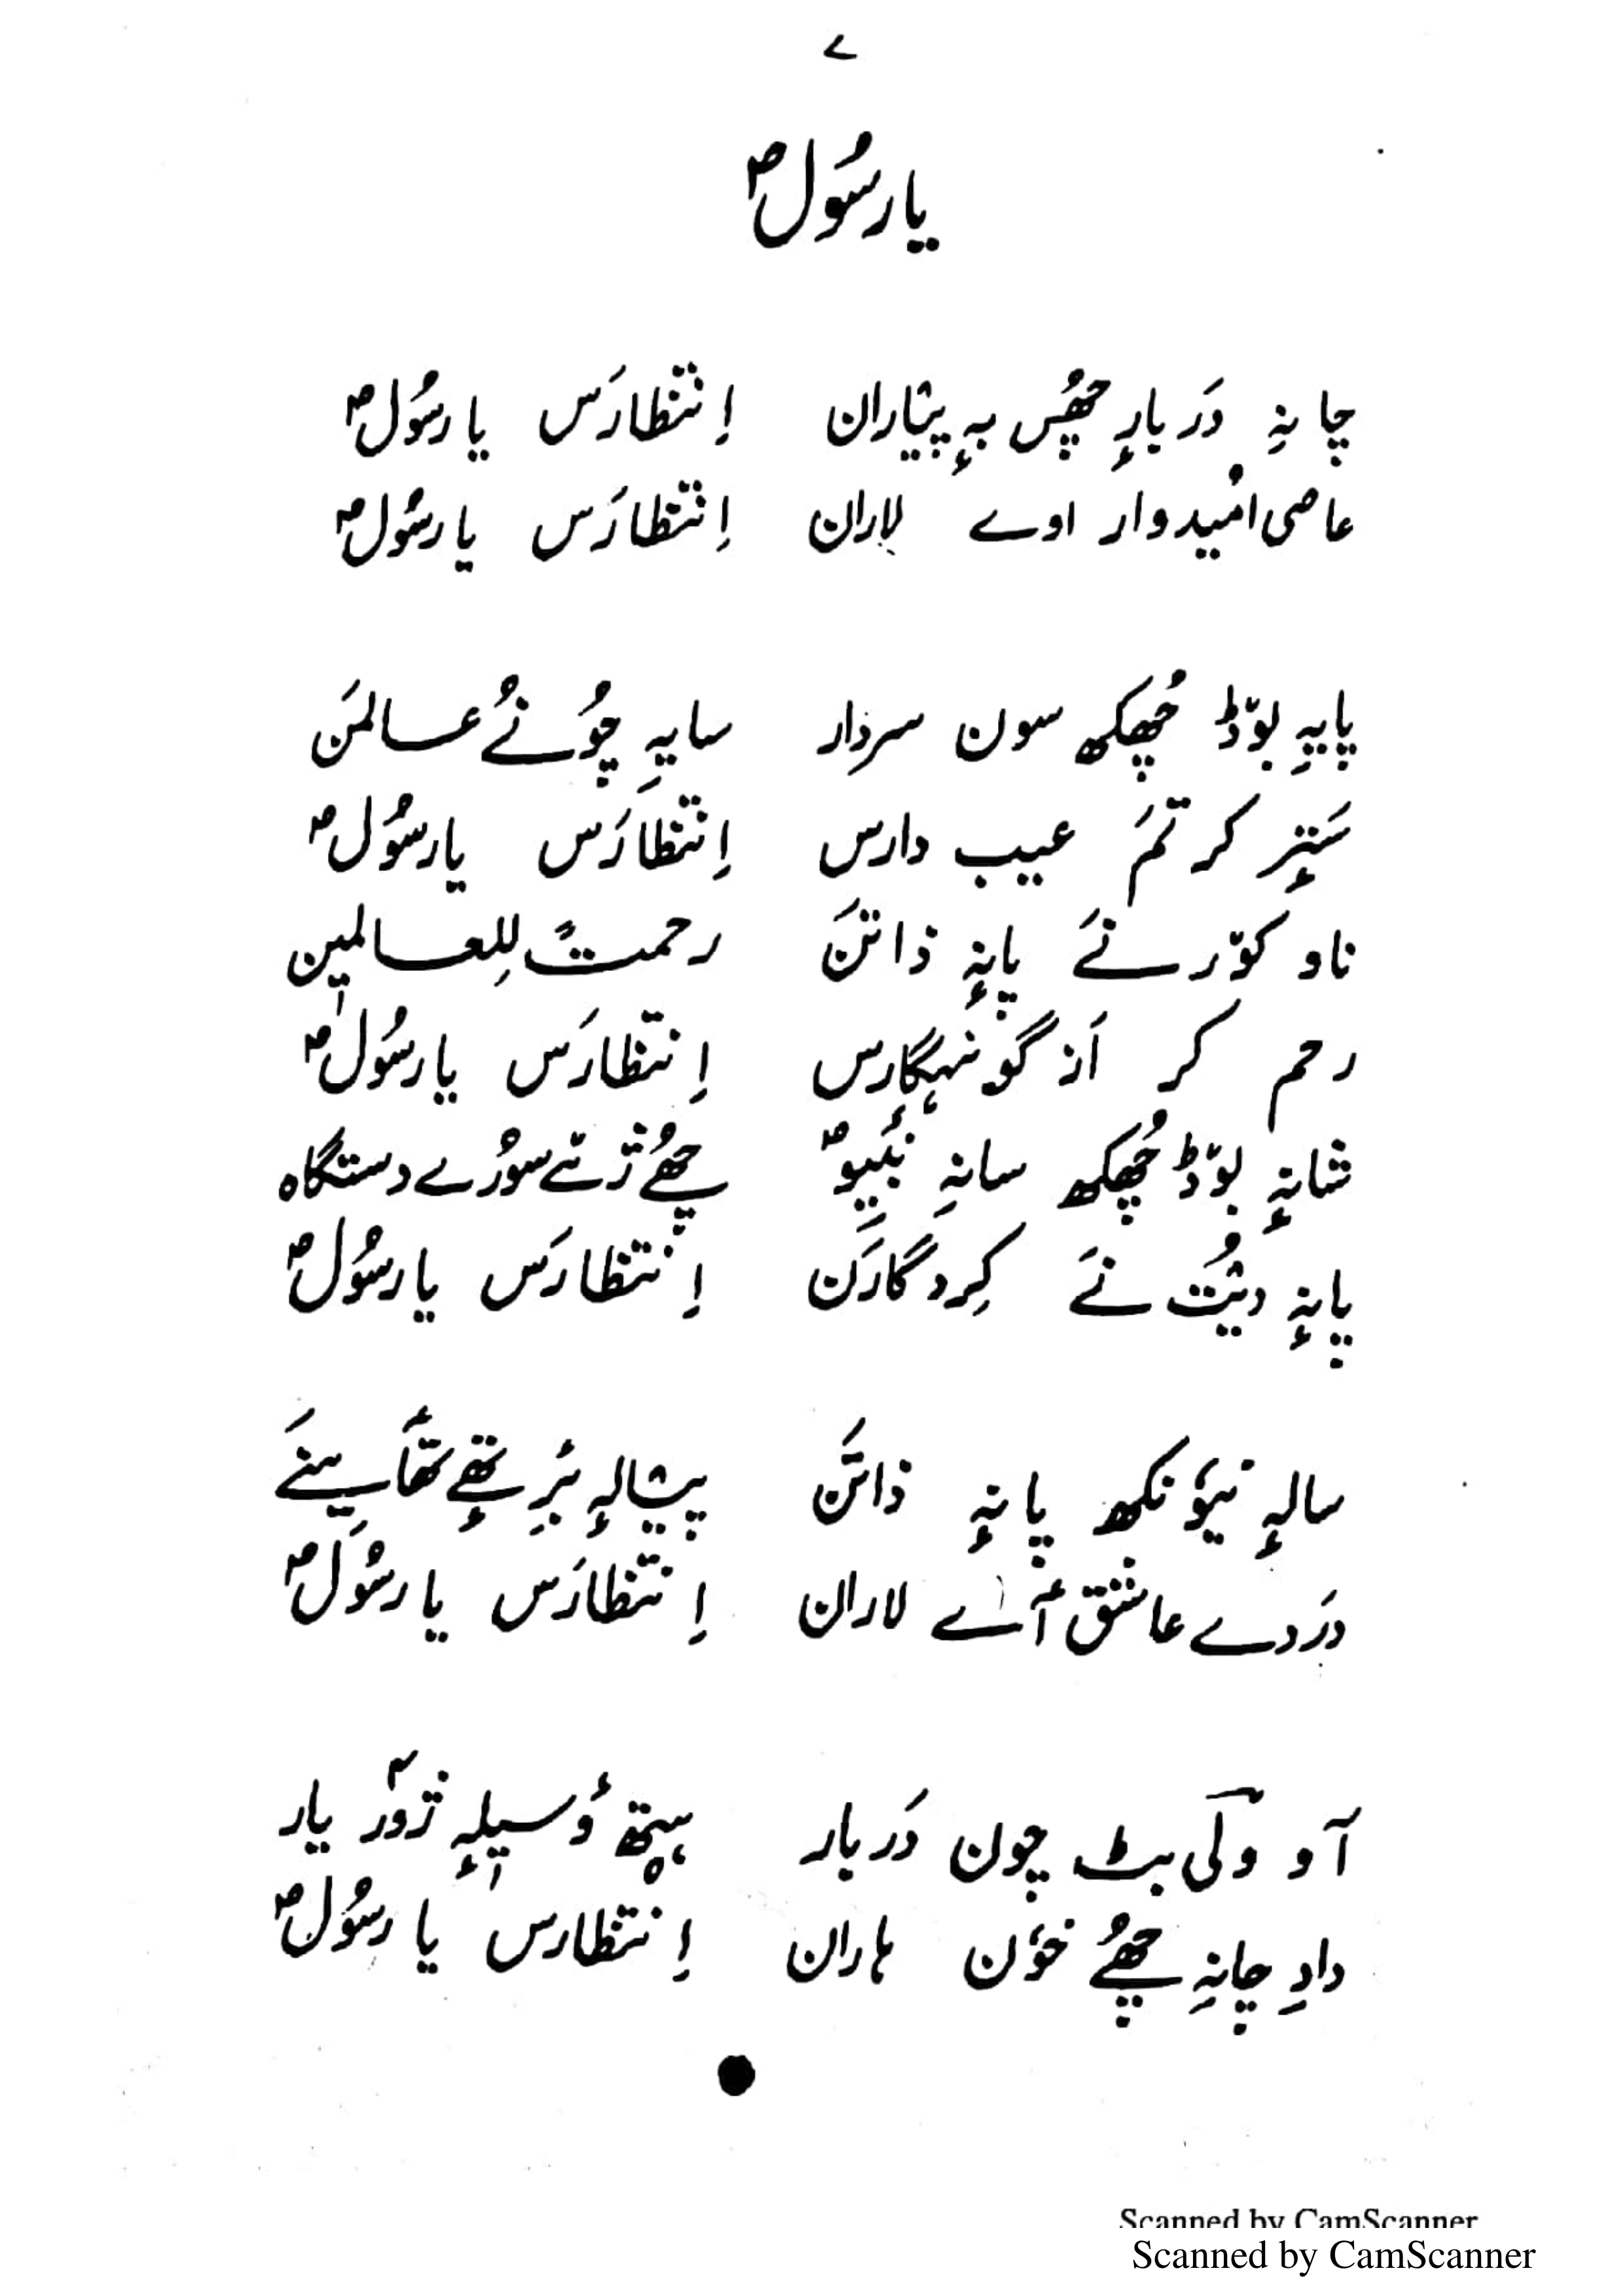 ۷
یا رسُول ؐ
چانہِ دَربارٕ چھُس بہٕ پیٛاران اِنتظارَس یا رسُول ؐ
عاصی امُیدوار اوے لاران اِنتظارَس یا رسُول ؐ
پایہِ بوٚڈ چھُکھ سون سردار سایہِ چوٗنُے عالمَن
سَتٕر کر تمَ عیب دارس اِنتظارَس یا رسُول ؐ
ناو کوٚرنےَ پانہٕ ذاتَن رحمتً لِلعالمین
رحم کر اَز گونہگارس اِنتظارَس یا رسُول ؐ
شانہٕ بوٚڈ چھُکھ سانہِ نَبیو ؐ چھےُ ژٕنے سورُے دستگاہ
پانہٕ دیٛتُت نےَ کِردگارَن اِنتظارَس یا رسُول ؐ
سالہٕ نیوٗنکھ پانہٕ ذاتَن پیٛالہٕ برَِ تھٕے تھأسینےَ
دَردے عاشق آے لاران اِنتظارَس یا رسُول ؐ
آو وکی بٹ چون دَربار ہیتھ وٗسیلہٕ ژور یار
دادِ چانہِ چھےُ خوٗن ہاران اِنتظارس یا رسُول ؐ
Scanned by CamScanner
Scanned by CamScanner